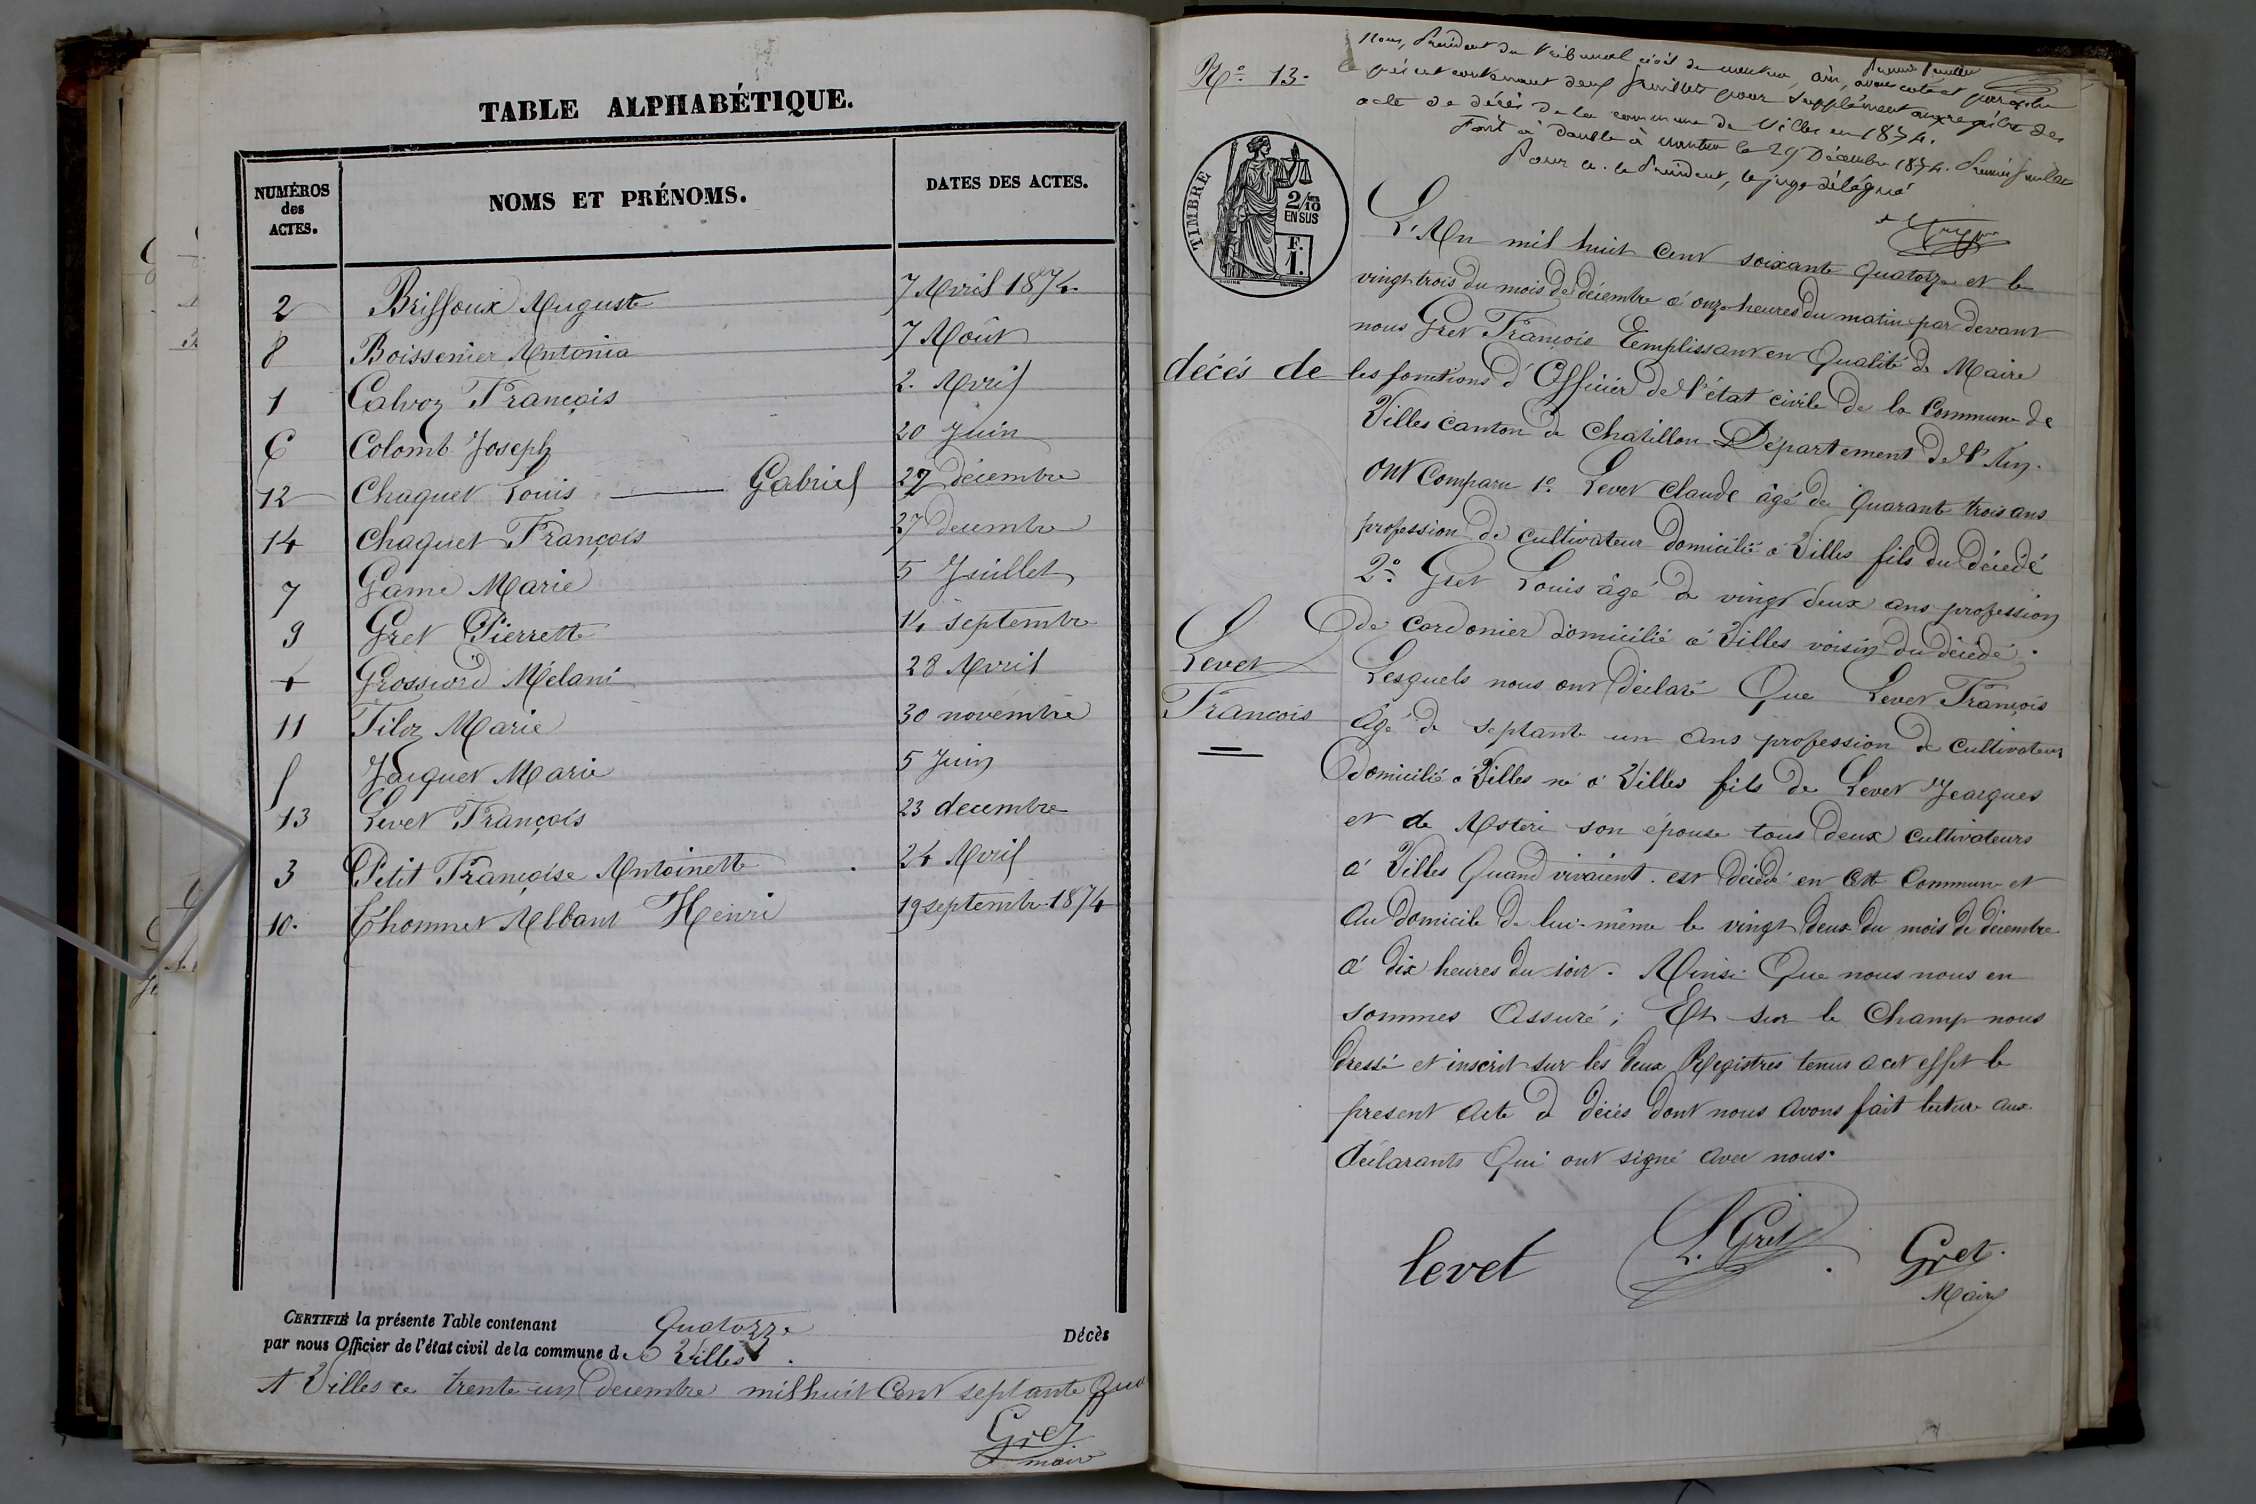 TABLE ALPHABÉTIQUE.
NUMÉROS des ACTES.
NOMS ET PRÉNOMS.
DATES DES ACTES.
2 Brissoux Auguste 7 Avril 1874
8 Boissenier Antonia 7 Août
1 Calvoz François 2. Avril
6 Colomb Joseph 20 Juin
12 Chaquet Louis Gabriel 22 décembre
14 Chaquet François 27 decembre
7 Game Marie 5 Juillet
9 Gret Pierrette 14 septembre
4 Grossiord Mélani 28 Avril
11 Filoz Marie 30 novembre
5 Jacquet Marie 5 Juin
13 Levet François 23 decembre
3 Petit Françoise Antoinette 24 Avril
10. Thommet Albant Henri 19 septembre 1874
CERTIFIÉ la présente Table contenant Quatorze Décès
par nous Officier de l'état civil de la commune de Villes.
A Villes ce trente un decembre mil huit cent septante Qua
Gret
maire
No. 13.
Nous, Président du Tribunal civil de nantua, ain, avons coté et paraphé
le présent contenant deux feuillets pour supplément aux registre des
acte de décès de la commune de Villes en 1874.
Fait à double à nantua le 29 Décembre 1874. Premier feuillet
Pour le Président, le juge délégué
TIMBRE
2/10
EN SUS
F.
1.
L'An mil huit cent soixante quatorze et le
vingt trois du mois de décembre à onze heures du matin par devant
nous Gret François Remplissant en Qualité de Maire
les fonctions d'Officier de l'état civile de la Commune de
Villes canton de Chatillon Département de l'Ain.
ont comparu 1o. Levet Claude âgé de quarante trois ans
profession de cultivateur domicilié à Villes fils du décédé
2o. Gret Louis âgé de vingt deux ans profession
de cordonier domicilié à Villes voisin du décédé.
Lesquels nous ont déclaré Que Levet François
âgé de septante un ans profession de cultivateur
domicilié à Villes né à Villes fils de Levet Jearques
et de Asteri son épouse tous deux cultivateurs
à Villes Quand vivaient. est décédé en cette commune et
au domicile de lui-même le vingt deux du mois de décembre
à dix heures du soir. Ainsi Que nous nous en
sommes Assuré; Et sur le champ nous
dressé et inscrit sur les deux Registres tenus a cet effet le
present acte de décès dont nous avons fait lecture aux
déclarants Qui ont signé avec nous.
décés de
Levet
Francois
levet
L. Gret
Gret.
Maire